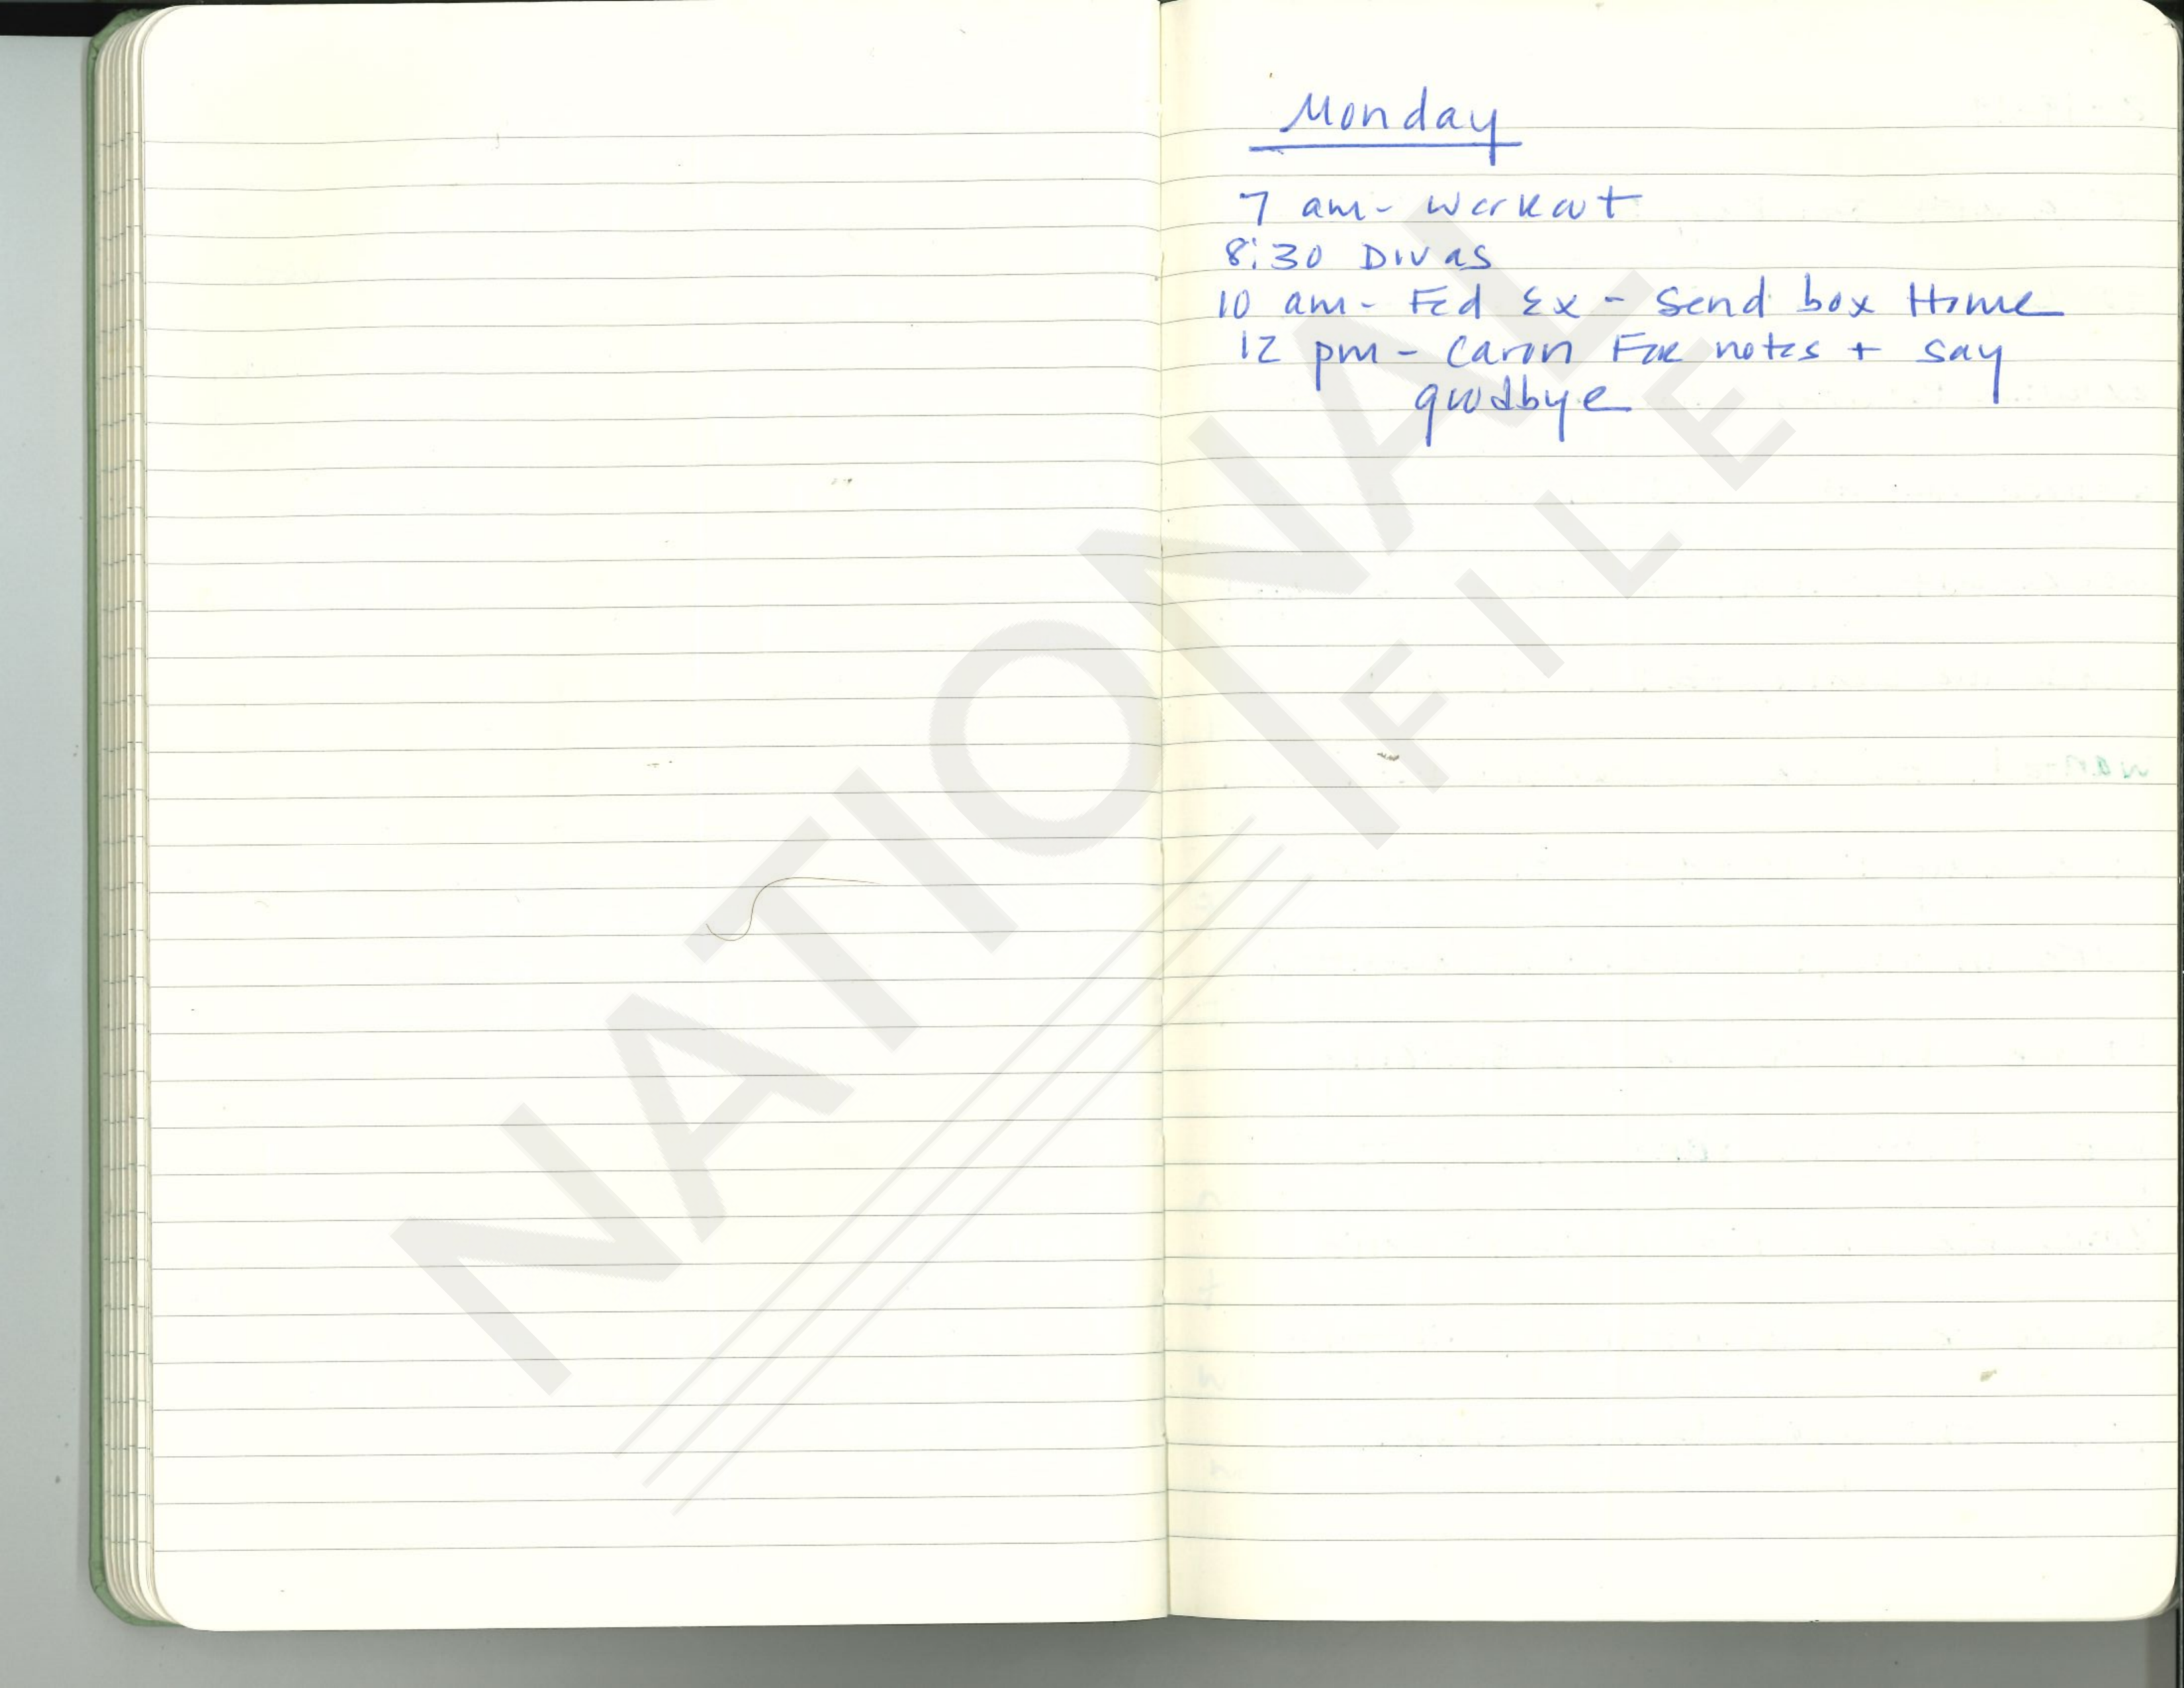 Monday
7 am - workout
8:30 Divas
10 am - Fed Ex - Send box Home
12 pm - Caron For notes + say
goodbye
NATIONAL
FILE